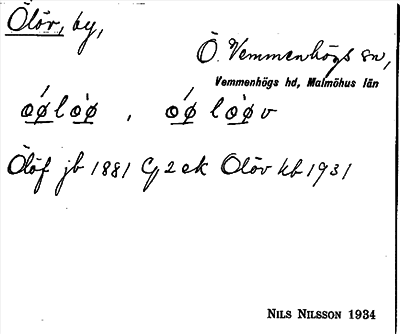 Ölöv, by,
Ö. Vemmenhögs sn,
Vemmenhögs hd, Malmöhus län
œ́ølœ̀ø , œ́ølœ̀øv
Ölöf jb 1881 Cg 2 ek Ölöv kb 1931
NILS NILSSON 1934